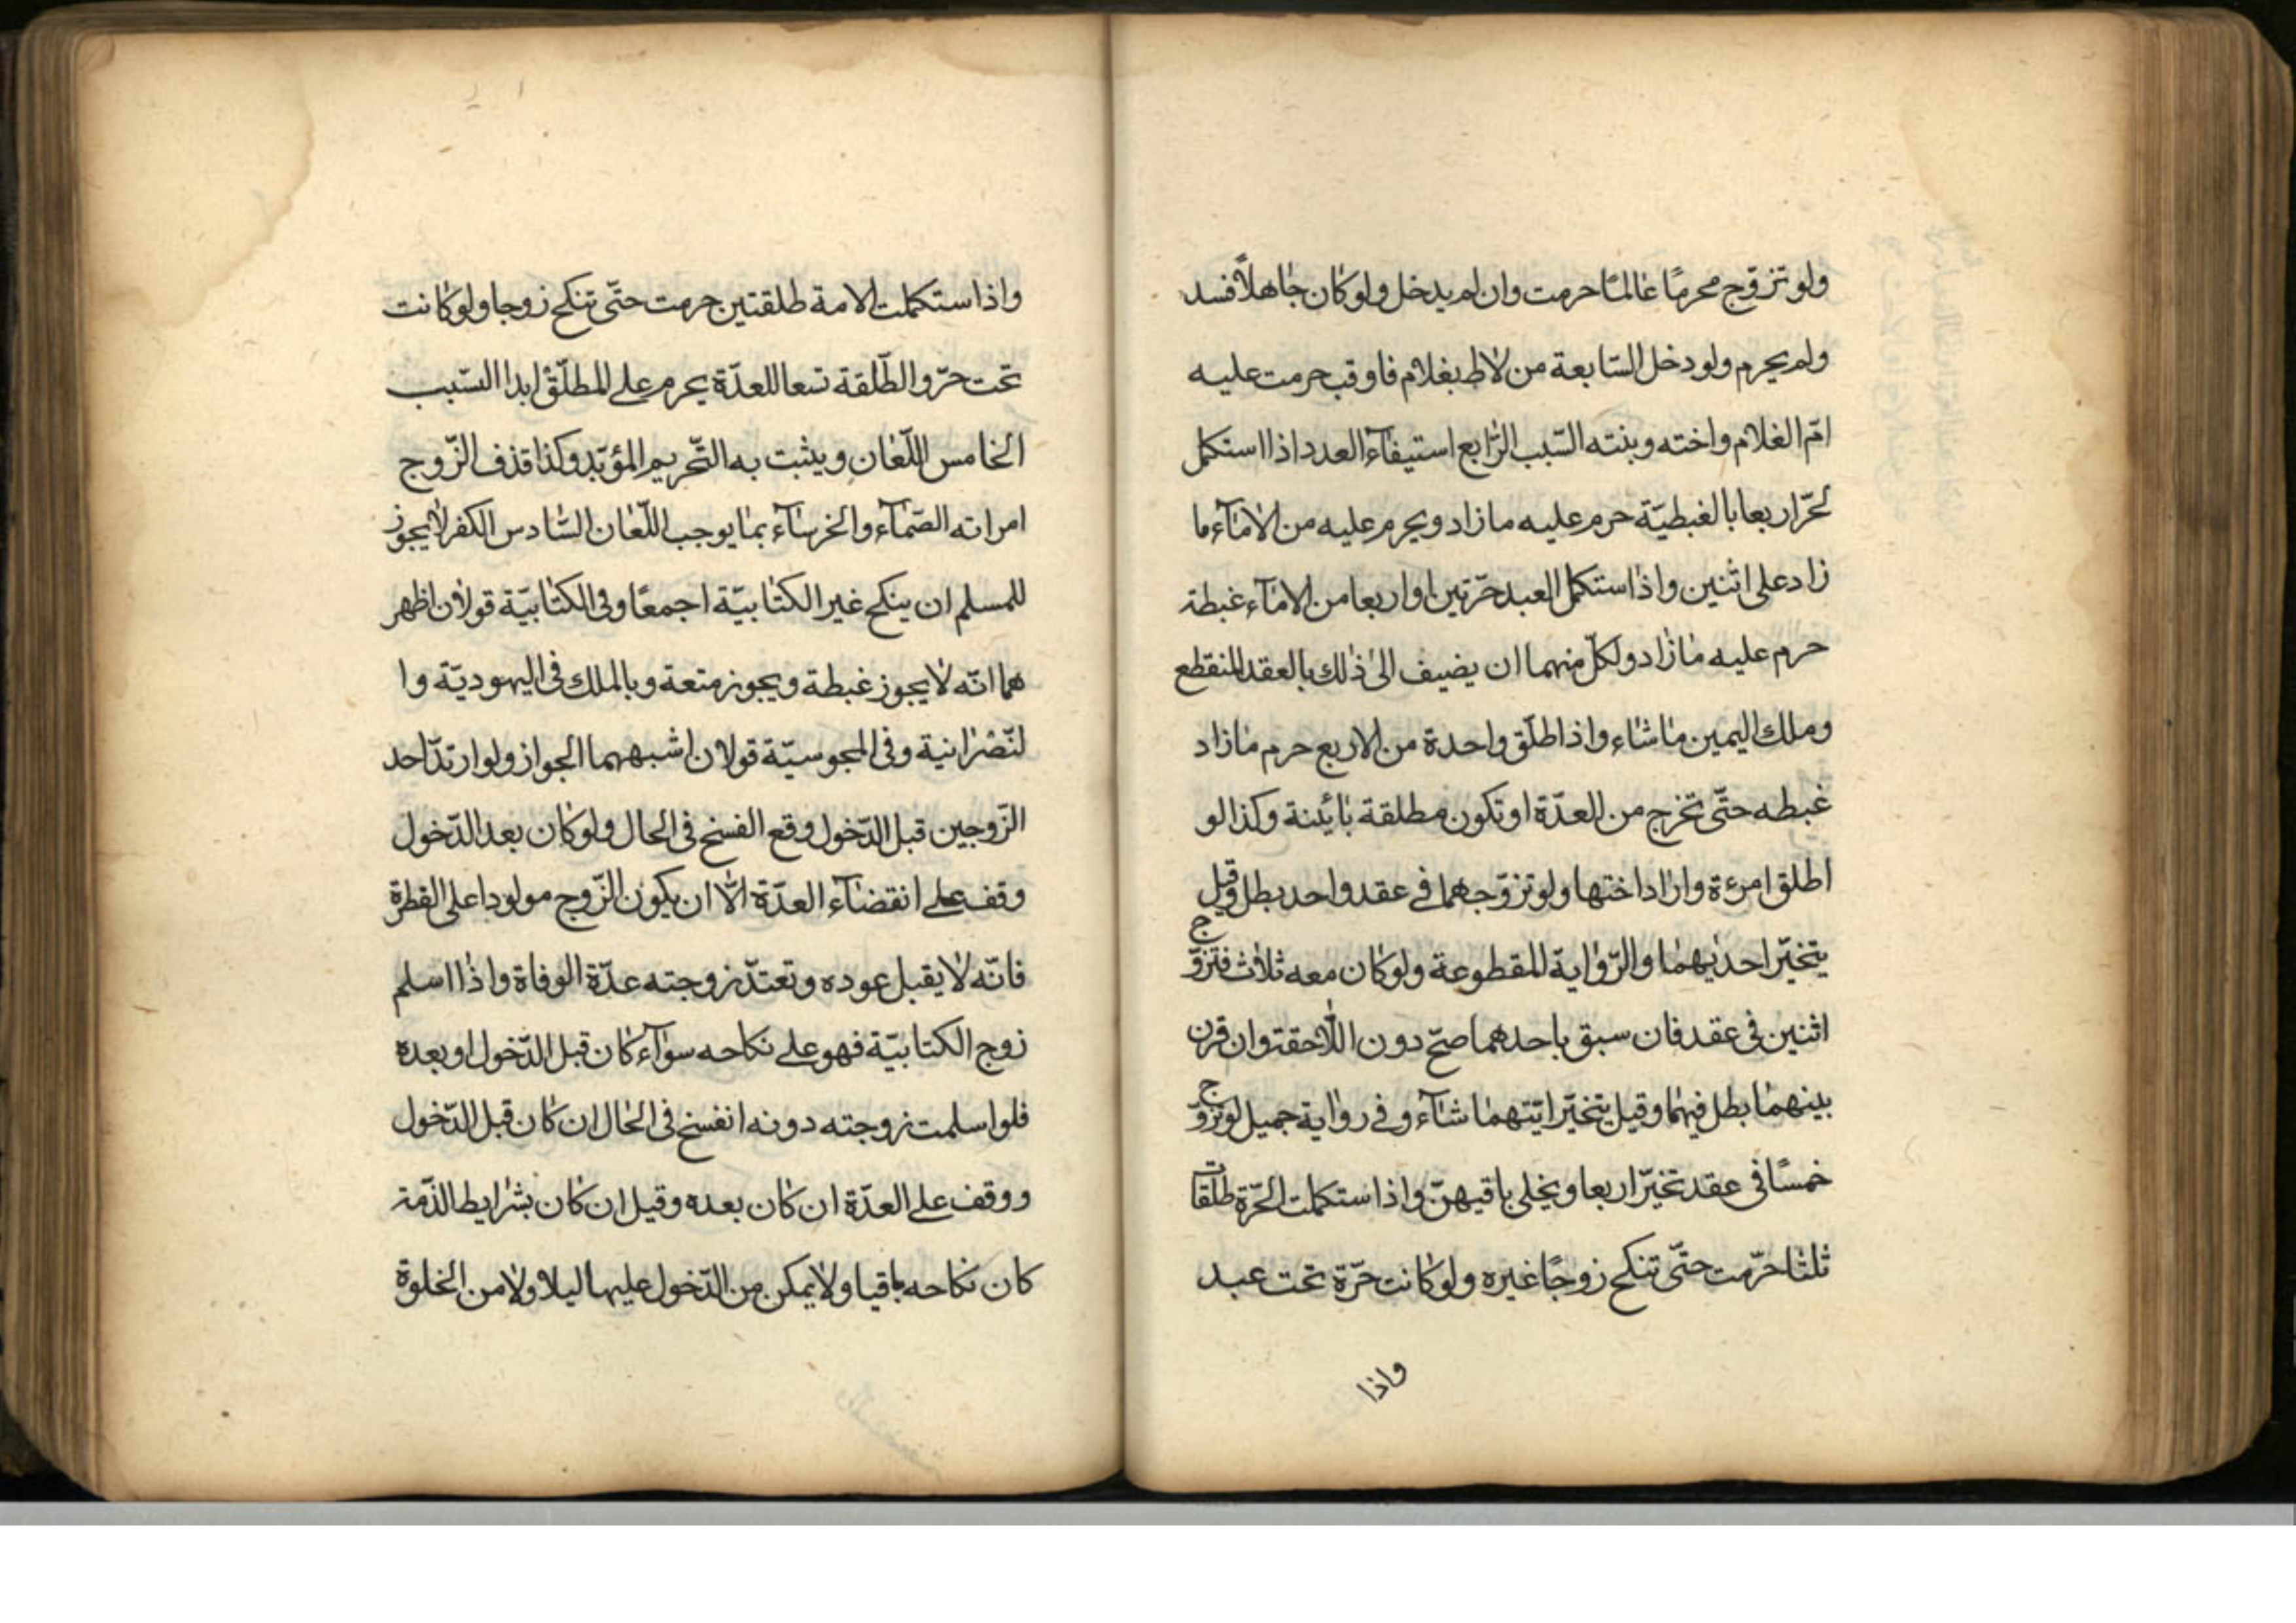 ولو تزوّج محرمًا عالمًا حرمت وان لم يدخل ولو كان جاهلاً فسد
ولم يحرم ولو دخل السّابعة من لاط بغلام فاوقب حرمت عليه
امّ الغلام واخته وبنته السّبب الرّابع استيفآء العدد اذا استكمل
لحرّ اربعا بالغبطيّة حرم عليه ما زاد ويحرم عليه من الامآء ما
زاد على اثنين واذا استكمل العبد حرّتين او اربعا من الامآء غبطة
حرم عليه ما زاد ولكلّ منهما ان يضيف الى ذلك بالعقد المنقطع
وملك اليمين ما شاء واذا طلّق واحدة من الاربع حرم ما زاد
غبطه حتّى تخرج من العدّة او تكون مطلقة بائنة وكذا لو
اطلق امرءة واراد اختها ولو تزوّجهما في عقد واحد بطل وقيل
يتخيّر احديهما والرّواية المقطوعة ولو كان معه ثلاث فتزوّج
اثنين في عقد فان سبق باحدهما صحّ دون اللّاحقة وان قرن
بينهما بطل فيهما وقيل يتخيّر ايّتهما شآء وفي رواية جميل لو تزوّج
خمسًا في عقد تخيّر اربعا ويخلى باقيهنّ واذا استكملت الحرّة طلقات
ثلثا حرّمت حتّى تنكح زوجًا غيره ولو كانت حرّة تحت عبد
واذا
واذا ستكملت الامة طلقتين حرمت حتّى تنكح زوجا ولو كانت
تحت حرّ والطّلقة تسعا للعدّة يحرم على المطلّق ابدا السّبب
الخامس اللّعان ويثبت به التّحريم المؤبّد وكذا قذف الزّوج
امراته الصّمآء والخرسآء بما يوجب اللّعان السّادس الكفر لا يجوز
للمسلم ان ينكح غير الكتابيّة اجمعًا وفي الكتابيّة قولان اظهر
هما انّه لا يجوز غبطة ويجوز متعة وبالملك في اليهوديّة وا
لنّصرانية وفي المجوسيّة قولان اشبههما الجواز ولو ارتدّ احد
الزّوجين قبل الدّخول وقع الفسخ في الحال ولو كان بعد الدّخول
وقف على انقضآء العدّة الّا ان يكون الزّوج مولودا على القطرة
فانّه لا يقبل عوده وتعتدّ زوجته عدّة الوفاة واذا اسلم
زوج الكتابيّة فهو على نكاحه سوآء كان قبل الدّخول او بعده
فلو اسلمت زوجته دونه انفسخ في الحال ان كان قبل الدّخول
ووقف على العدّة ان كان بعده وقيل ان كان بشرايط الذّمة
كان نكاحه باقيا ولا يمكن من الدّخول عليها ليلا ولا من الخلوة